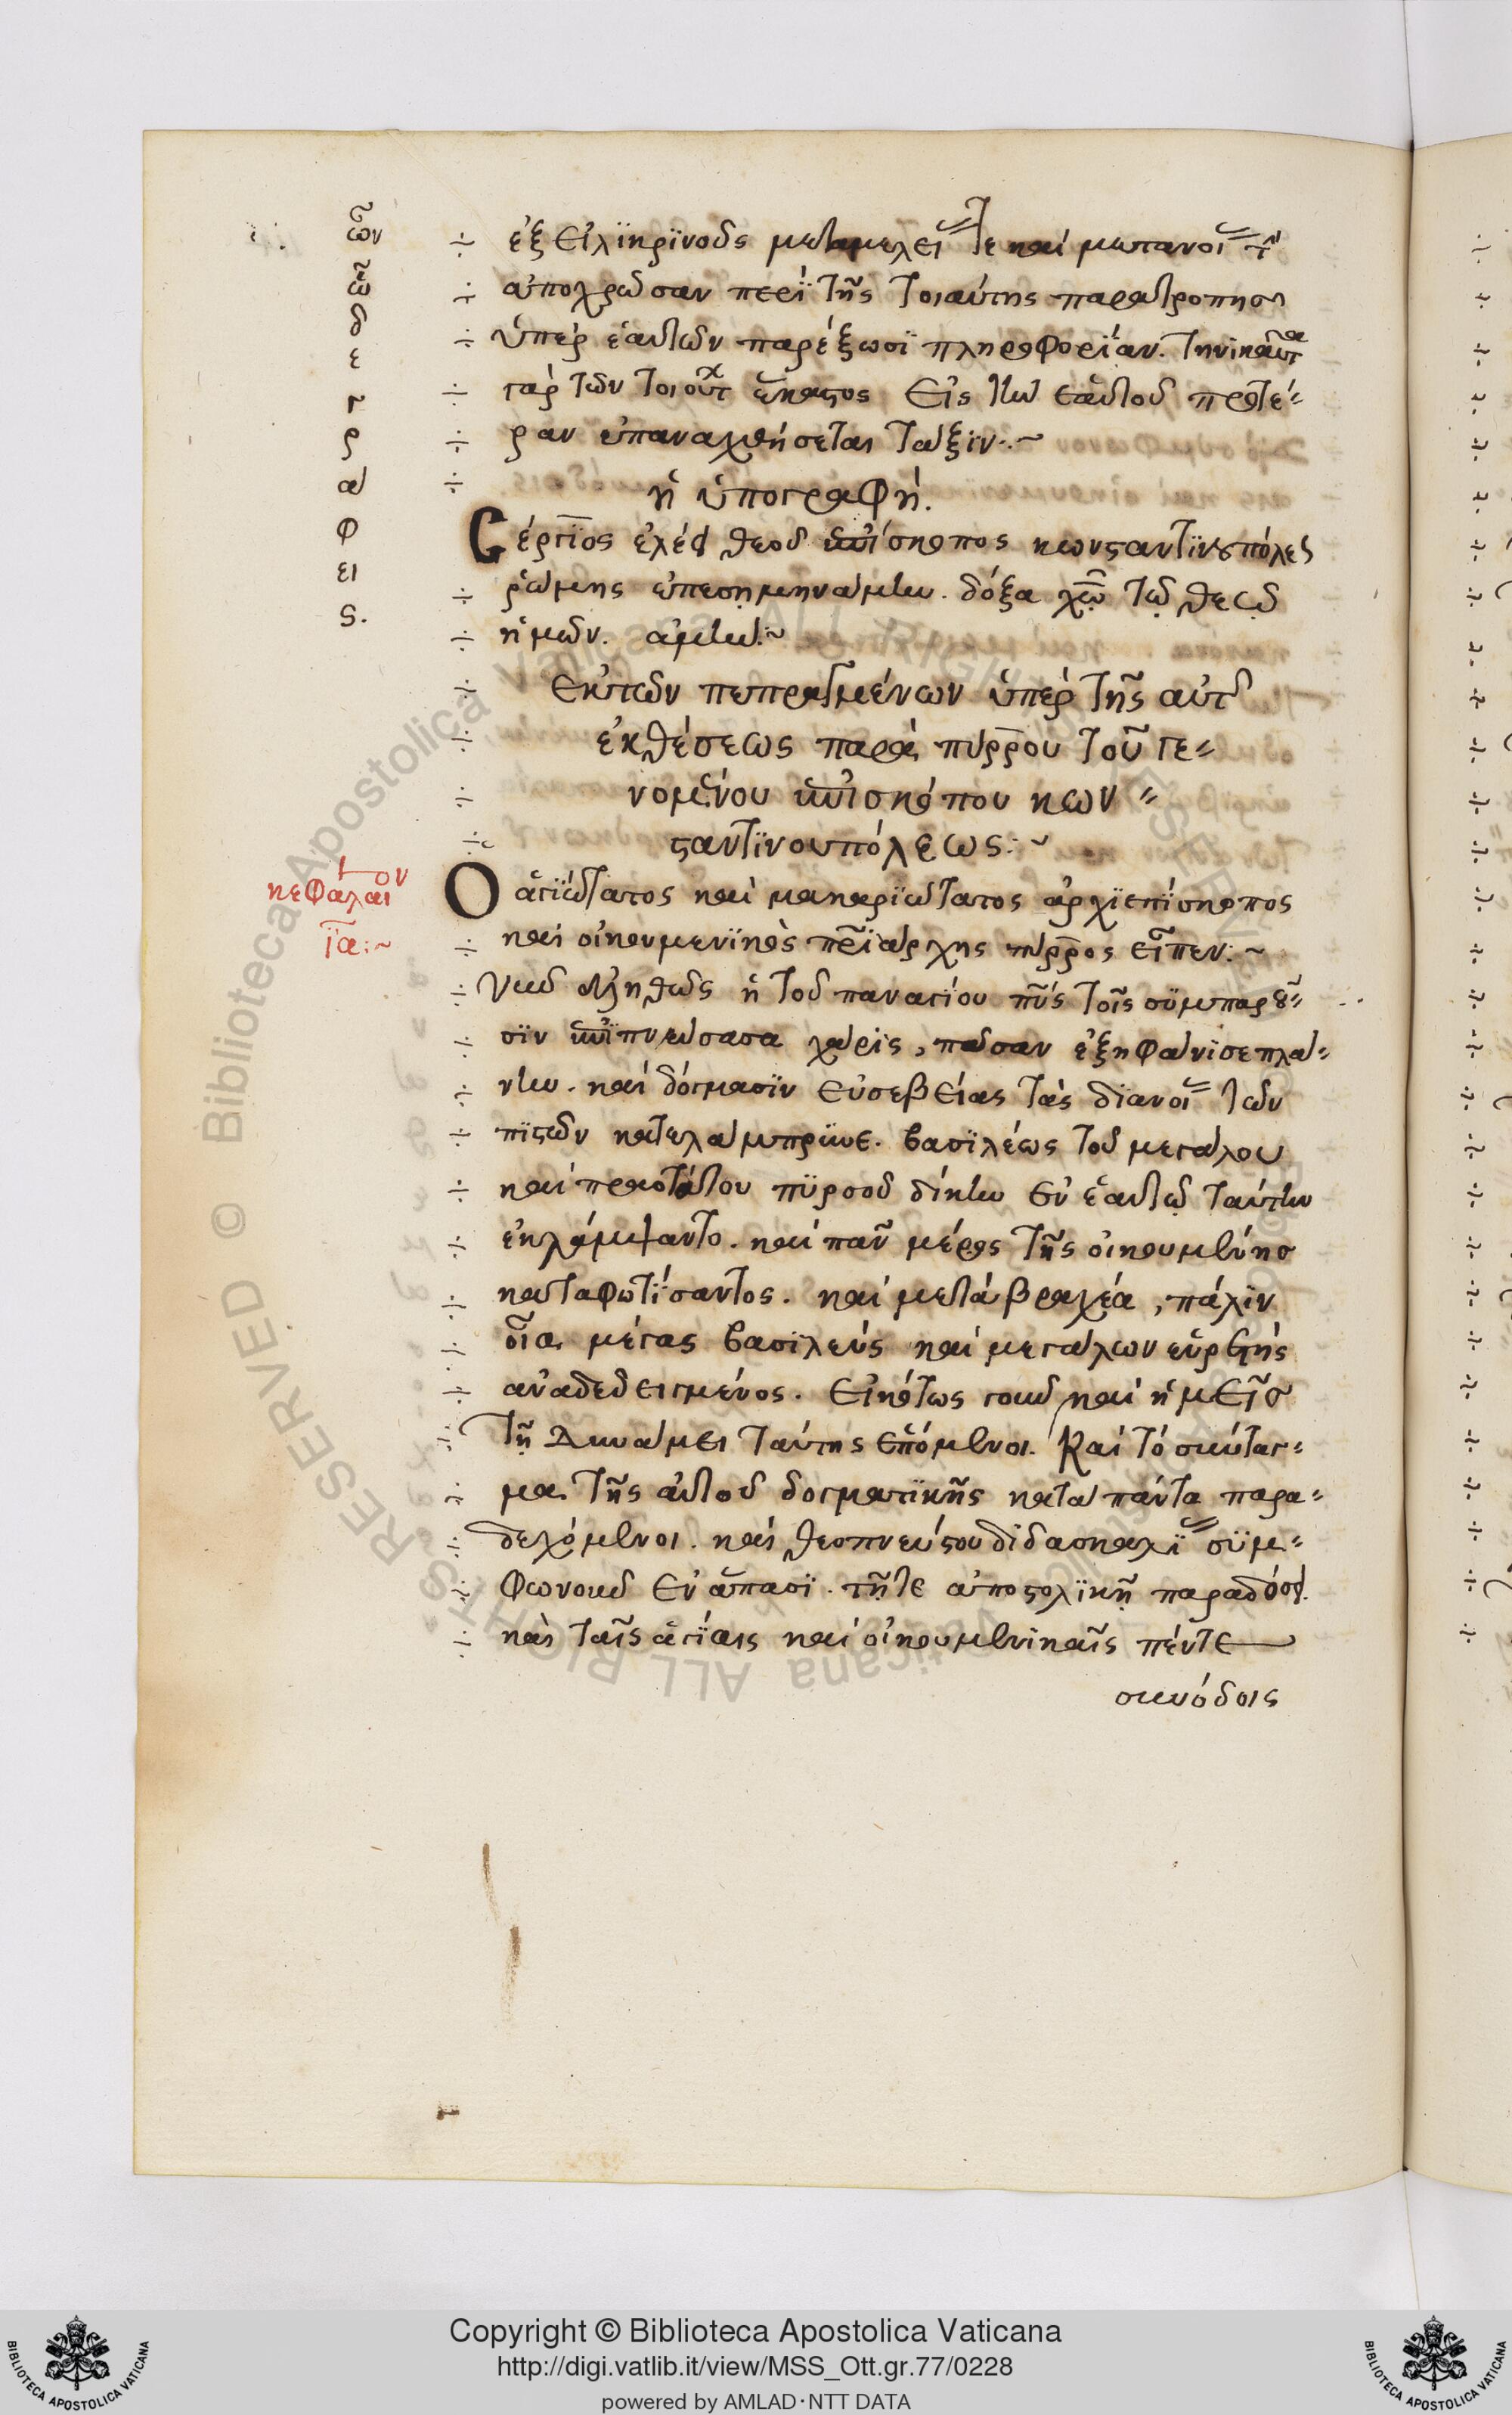 ἐξ εἰλϊκρϊνοῦς μεταμελεί τε καὶ μετανοί τὴν
ἀπολχρῶσαν περὶ τῆς τοιαύτης παρατροπῆσ
ὑπὲρ ἑαυτῶν παρέξωσϊ πληροφορΐαν. τηνικαῦτα
γὰρ τῶν τοιούτ ἕκαστος εἰς τὴν ἑαυτοῦ προτέ=
ραν ἐπαναχθήσεται τάξϊν:~
ἡ ὑπογραφή.
Σέργϊος ἐλέει θεοῦ ἐπίσκοπος κωνσταντϊνουπόλε
ῥώμης ἐπεσημηνάμην. δόξα χῶ τῷ θεῷ
ἡμῶν. ἀμήν:~
Ἐκ τῶν πεπραγμένων ὑπὲρ τῆς αὐτ
ἐκθέσεως παρὰ πύρρου τοῦ γε=
νομένου ἐπισκόπου κων=
σταντϊνουπόλεως:~
Ὁ ἁγϊώτατος καὶ μακαρϊώτατος ἀρχϊεπΐσκοπος
καὶ οἰκουμενϊκὸς πρϊάρχης πύρρος εἶπεν:~
Νῦν ἀληθῶς ἡ τοῦ παναγίου πνς τοῖς συμπαροῦ=
σϊν ἐπιπνεύσασα χάρις, πᾶσαν ἐξηφάνισε πλά=
νην. καὶ δόγμασϊν εὐσεβείας τὰς διανοί τῶν
πϊστῶν κατελάμπρυνε. βασϊλέως τοῦ μεγάλου
καὶ πραοτάτου πϋρσοῦ δίκην ἐν ἑαυτῷ ταύτην
ἐκλάμψαντο. καὶ πᾶν μέρος τῆς οἰκουμένησ
καταφωτίσαντος. καὶ μετὰ βραχέα, πάλϊν
οἷα μέγας βασϊλεὺς καὶ μεγάλων εὑρετὴς
ἀναδεδειγμένος. εἰκότως γοῦν καὶ ἡμεῖσ
τῇ δυνάμει ταύτης ἑπόμενοι. Καὶ τὸ σύνταγ=
μα τῆς αὐτοῦ δογματϊκῆς κατὰ πάντα παρα=
δεχόμενοι. καὶ θεοπνεύστου διδασκαλΐ σϋμ=
φωνοῦν ἐν ἅπασϊ. τῇ τε ἀποστολϊκῇ παραδόσει.
καὶ ταῖς ἁγΐαις καὶ οἰκουμενικαῖς πέντε
συνόδοις
ῶν
ῶ
δ
ε
γ
ρ
α
φ
ει
ς.
κεφάλαιον
ϊα:~
Copyright © Biblioteca Apostolica Vaticana
http://digi.vatlib.it/view/MSS_Ott.gr.77/0228
powered by AMLAD·NTT DATA
BIBLIOTECA APOSTOLICA VATICANA
BIBLIOTECA APOSTOLICA VATICANA